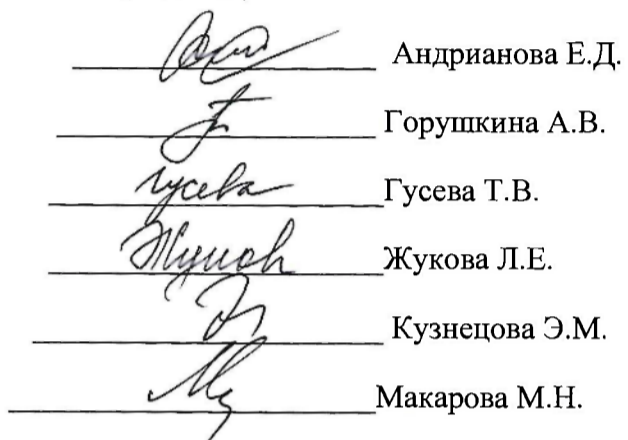 Андрианова Е.Д.
Горушкина А.В.
гусева Гусева Т.В.
Жуков Жукова Л.Е.
Кузнецова Э.М.
Макарова М.Н.